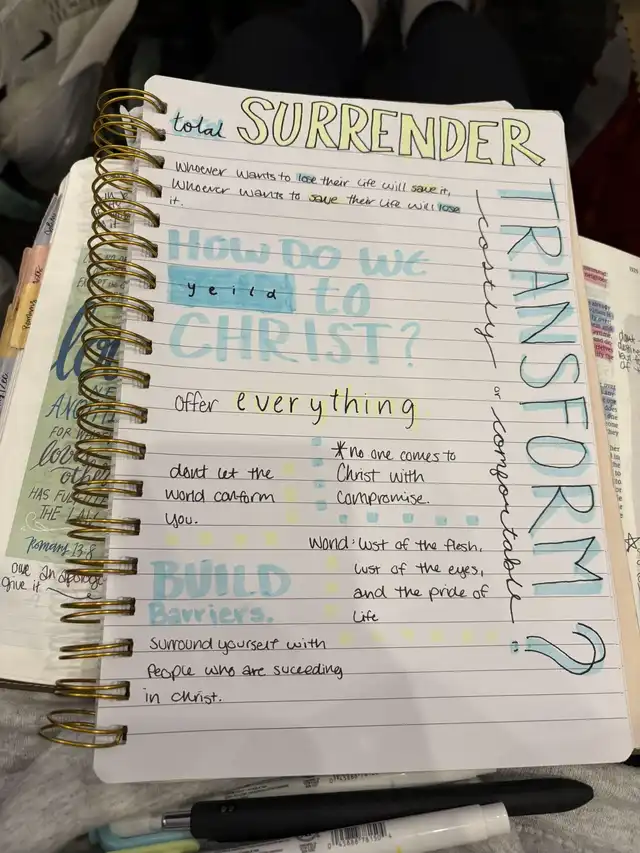 total SURRENDER
Whoever wants to lose their life will save it,
Whoever wants to save their life will lose
it.
HOW DO WE
yeild to
CHRIST?
offer everything
dont let the
world conform
you.
*no one comes to
Christ with
compromise.
World: lust of the flesh,
lust of the eyes,
and the pride of
life
BUILD
Barriers.
Surround yourself with
People who are suceeding
in christ.
TRANSFORM?
costly or comfortable
FOR
love
other
HAS
THE LAW
Romans 13:8
give it